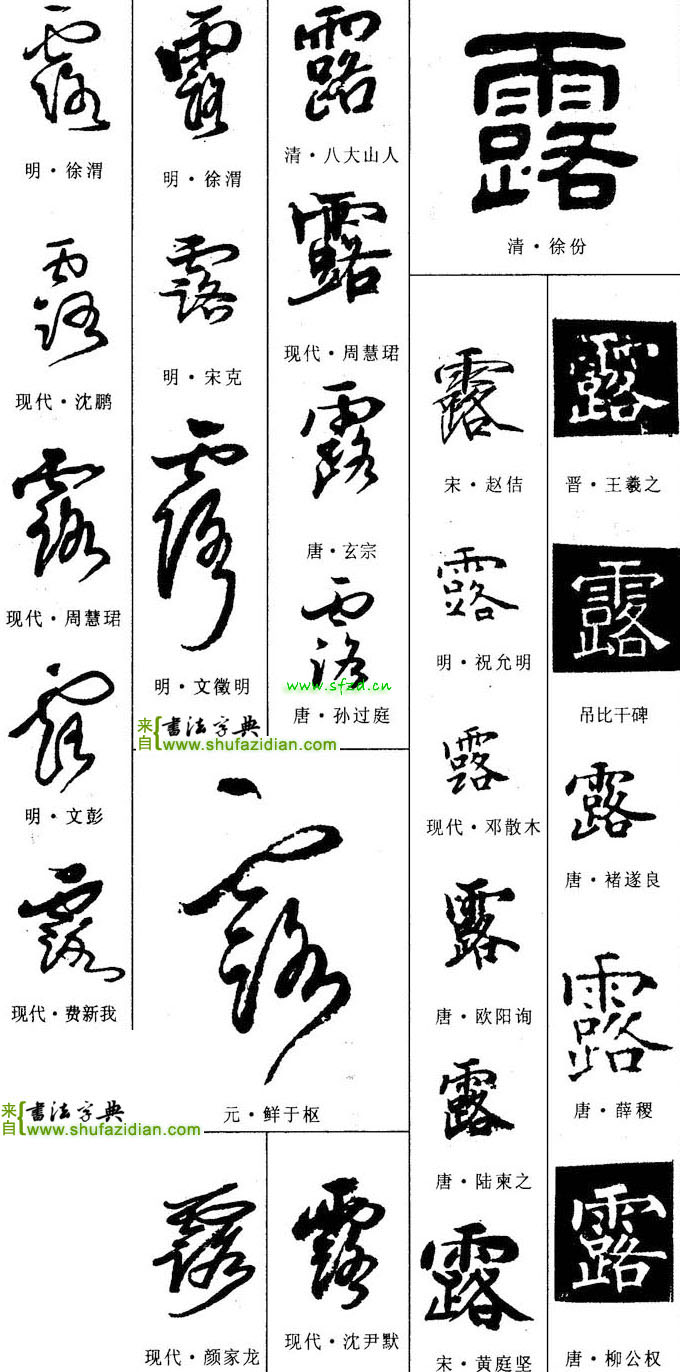 露
清·徐份
露
晋·王羲之
露
吊比干碑
露
唐·褚遂良
露
唐·薛稷
露
唐·柳公权
露
宋·赵佶
露
明·祝允明
露
现代·邓散木
露
唐·欧阳询
露
唐·陆柬之
露
宋·黄庭坚
露
清·八大山人
露
现代·周慧珺
露
唐·玄宗
露
www.sfzd.cn
唐·孙过庭
露
明·徐渭
露
明·宋克
露
明·文徵明
来自 书法字典
www.shufazidian.com
露
元·鲜于枢
露
现代·沈尹默
露
现代·颜家龙
露
明·徐渭
露
现代·沈鹏
露
现代·周慧珺
露
明·文彭
露
现代·费新我
来自 书法字典
www.shufazidian.com